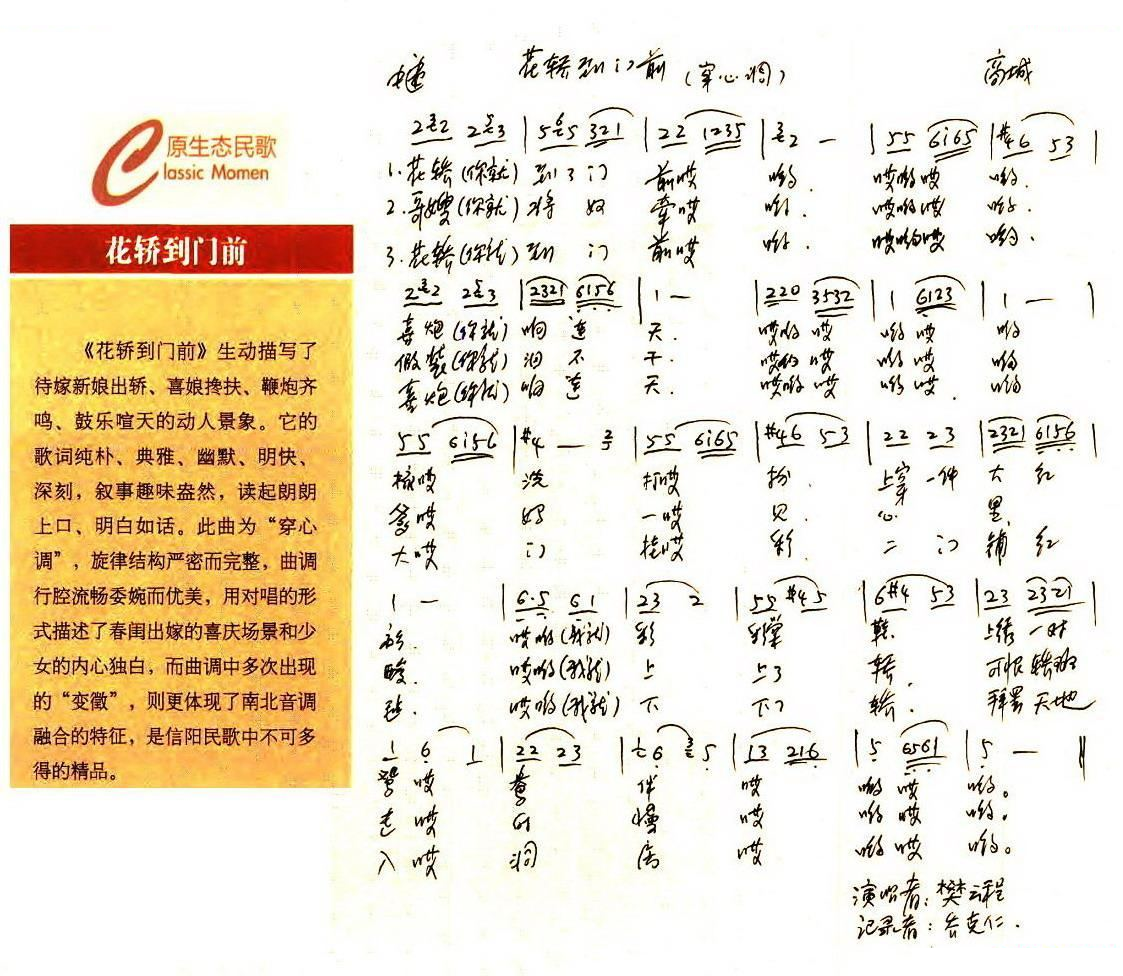 原生态民歌
Classic Momen
花轿到门前
《花轿到门前》生动描写了
待嫁新娘出轿、喜娘搀扶、鞭炮齐
鸣、鼓乐喧天的动人景象。它的
歌词纯朴、典雅、幽默、明快、
深刻，叙事趣味盎然，读起朗朗
上口、明白如话。此曲为“穿心
调”，旋律结构严密而完整，曲调
行腔流畅委婉而优美，用对唱的形
式描述了春闺出嫁的喜庆场景和少
女的内心独白，而曲调中多次出现
的“变徵”，则更体现了南北音调
融合的特征，是信阳民歌中不可多
得的精品。
花轿到门前（穿心调） 商城
1.花轿(你就) 到了门 前哎 哟. 哎哟哎 哟.
2.哥嫂(你就) 将奴 牵哎 哟. 哎哟哎 哟.
3.花轿(你就) 到门 前哎 哟. 哎哟哎 哟.
2321 6156 | 1 — | 220 3532 | 1 6123 | 1 — |
喜炮(你就) 响连 天. 哎哟哎 哟哎 哟
假装(你就) 泪不 干. 哎哟哎 哟哎. 哟
喜炮(你就) 响连 天. 哎哟哎 哟哎. 哟
55 6i56 | #4 — | 55 6i65 | #46 53 | 22 23 | 2321 6156 |
梳哎 洗 打哎 扮. 上穿一件 大红
爹哎 妈 一哎 见. 心 里
大哎 门 挂哎 彩. 二门 铺红
1 — | 6·5 61 | 23 2 | 55 #45 | 6#4 53 | 23 2321 |
哎哟(我就)
酸. 哎哟(我就) 上 上了 轿.
毡. 哎哟(我就) 下 下了 轿. 拜罢天地
1 6 1 | 22 23 | 13 216 | 5 6561 | 5 — ‖
鸳哎 鸯 伴 哎 哟哎 哟。
走哎 慢 哎 哟哎 哟。
入哎 洞 房 哎 哟哎 哟。
演唱者：樊云程
记录者：